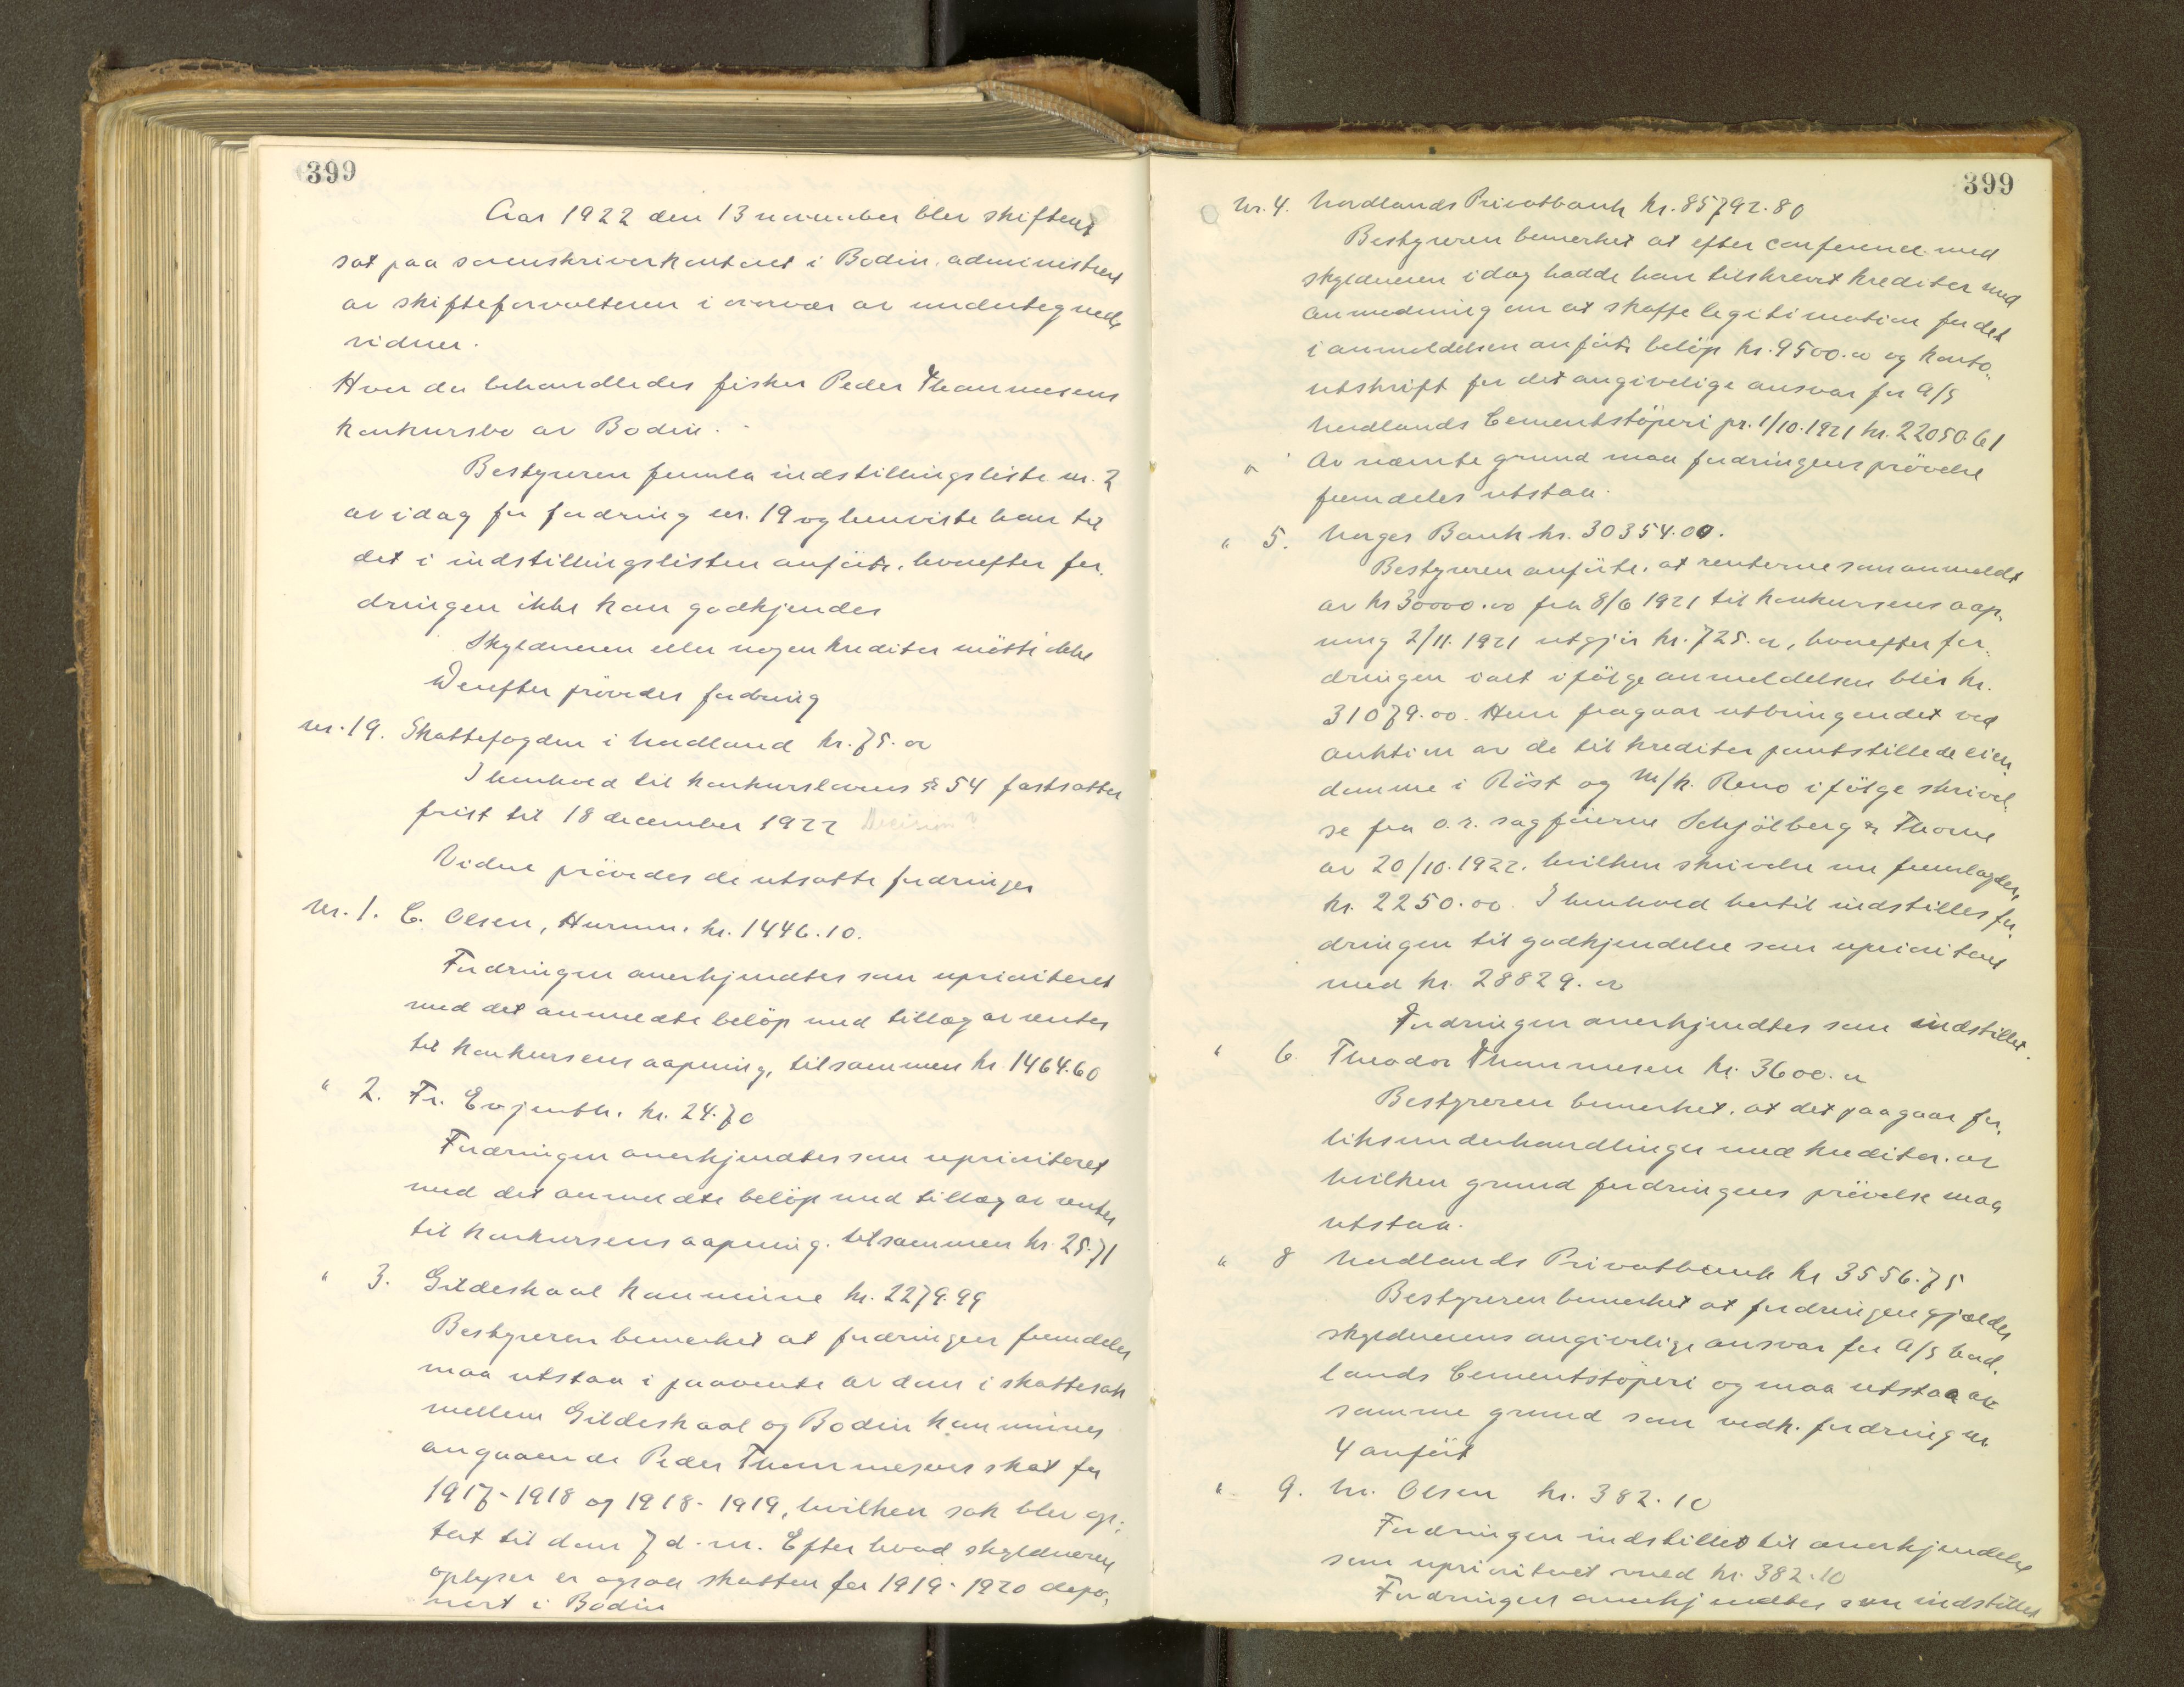 399
Aar 1922 den 13 november blev skifteret
sat paa sorenskriverkontoret i Bodin, administreret
av skifteforvalteren i overvær av undertegnede
vidner.
Hvor da behandledes fisker Peder Thommesens
konkursbo av Bodin.
Bestyreren fremla indstillingsliste nr. 2
av idag for fordring nr. 19 og henviste han til
det i indstillingslisten anførte, hvorefter for-
dringen ikke kan godkjendes
Skyldneren eller nogen kreditor møtte ikke
Derefter prøvedes fordring
nr. 19. Skattefogden i Nordland kr. 75.00
I henhold til konkurslovens § 54 fastsattes
frist til 18 december 1922 Decision?
Videre prøvedes de utsatte fordringer
Nr. 1. C. Olsen, Hurum. kr. 1446.10.
Fordringen anerkjendtes som uprioriteret
med det anmeldte beløp med tillæg av renter
til konkursens aapning, tilsammen kr. 1464.60
" 2. Fr. Evjenth. kr. 24.70
Fordringen anerkjendtes som uprioriteret
med det anmeldte beløp med tillæg av renter
til konkursens aapning. tilsammen kr. 25.71
" 3. Gildeskaal kommune kr. 2279.99
Bestyreren bemerket at fordringen fremdeles
maa utstaa i paavente av dom i skattesak
mellem Gildeskaal og Bodin kommuner
angaaende Peder Thommesens skat for
1917-1918 og 1918-1919, hvilken sak blev op-
tat til dom 7 d.m. Efter hvad skyldneren
oplyser er ogsaa skatten for 1919-1920 depo-
nert i Bodin
399
Nr. 4. Nordlands Privatbank kr. 85792.80
Bestyreren bemerket at efter conference med
skyldneren idag hadde han tilskrevet kreditor med
anmodning om at skaffe legitimation for det
i anmeldelsen anførte beløp kr. 9500.00 og konto-
utskrift for det angivelige ansvar for A/S
Nordlands Cementstøperi pr. 1/10.1921 kr. 22050.61
" Av nævnte grund maa fordringens prøvelse
fremdeles utstaa.
" 5. Norges Bank kr. 30354.00.
Bestyreren anførte, at renterne som anmeldt
av kr 30000.00 fra 8/6 1921 til konkursens aap-
ning 2/11.1921 utgjør kr. 725.00, hvorefter for-
dringen ialt ifølge anmeldelsen blir kr.
31079.00. Herav fragaar utbringendet ved
auktion av de til kreditor pantstillede eien-
domme i Røst og M/k. Reno ifølge skrivel-
se fra o.r. sagførerne Schjølberg & Thorne
av 20/10.1922. hvilken skrivelse nu fremlagdes,
kr. 2250.00. I henhold hertil indstilles for-
dringen til godkjendelse som uprioriteret
med kr. 28829.00
Fordringen anerkjendtes som indstillet.
" 6 Theodor Thommesen kr. 3600.00
Bestyreren bemerket, at det paagaar for-
liksunderhandlinger med kreditor. av
hvilken grund fordringens prøvelse maa
utstaa.
" 8 Nordlands Privatbank kr 3556.75
Bestyreren bemerket at fordringen gjælder
skyldnerens angivelige ansvar for A/S Nord-
lands Cementstøperi og maa utstaa av
samme grund som vedk. fordring nr.
4 anført
" 9. M. Olsen kr. 382.10
Fordringen indstilles til anerkjendelse
som uprioriteret med kr. 382.10
Fordringen anerkjendtes som indstillet